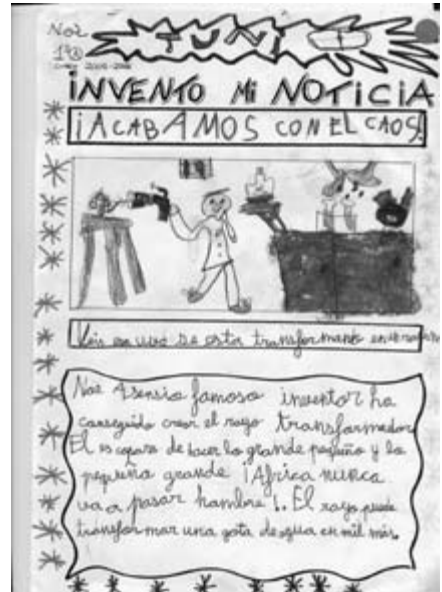 Noa
INVENTO MI NOTICIA
¡ACABAMOS CON EL CAOS!
se esta transformando en
Noa Asensio famoso inventor ha
conseguido crear el rayo transformador
El es capaz de hacer lo grande pequeño y lo
pequeño grande ¡Africa nunca
va a pasar hambre!. El rayo puede
transformar una gota de agua en mil más.